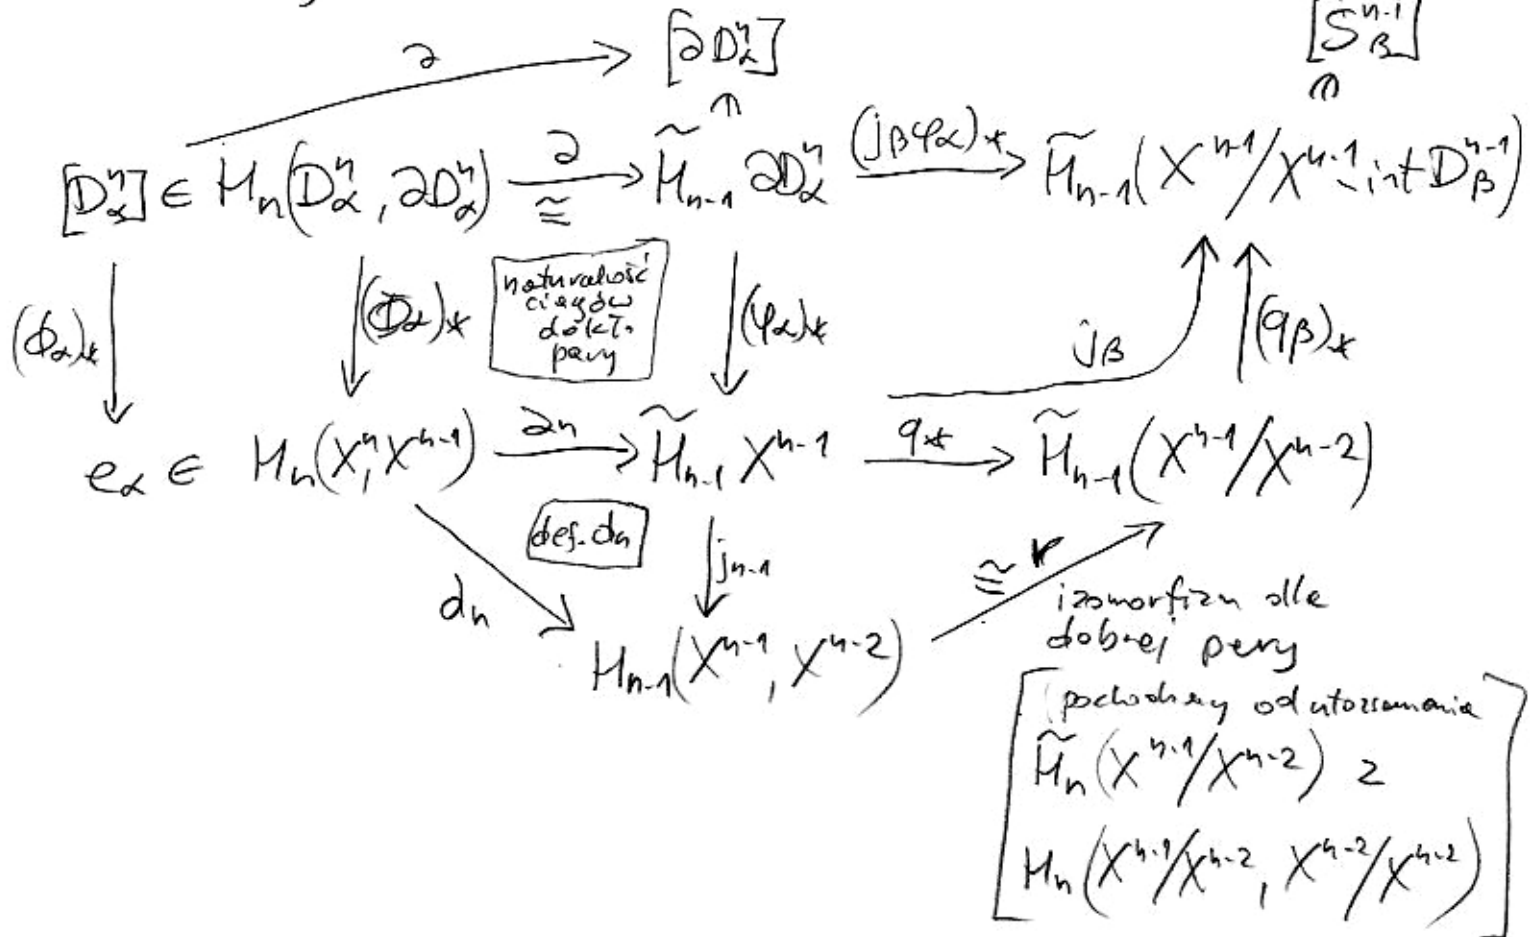 ∂ [∂Dⁿ_α] [S^{n-1}_β]
[Dⁿ_α] ∈ Hₙ(Dⁿ_α, ∂Dⁿ_α) ∂ ≅ H̃ₙ₋₁ ∂Dⁿ_α (j_β φ_α)_* H̃ₙ₋₁(X^{n-1}/X^{n-1} - int D^{n-1}_β)
(Φ_α)_* (Φ_α)_* naturalność
ciągów
dokł.
pary
(φ_α)_* j_β (q_β)_*
e_α ∈ Hₙ(Xⁿ, X^{n-1}) ∂ₙ H̃ₙ₋₁ X^{n-1} q_* H̃ₙ₋₁(X^{n-1}/X^{n-2})
dₙ def. dₙ jₙ₋₁ ≅ r
Hₙ₋₁(X^{n-1}, X^{n-2})
izomorfizm dla
dobrej pary
(pochodzący od utożsamienia
H̃ₙ(X^{n-1}/X^{n-2}) z
Hₙ(X^{n-1}/X^{n-2}, X^{n-2}/X^{n-2})